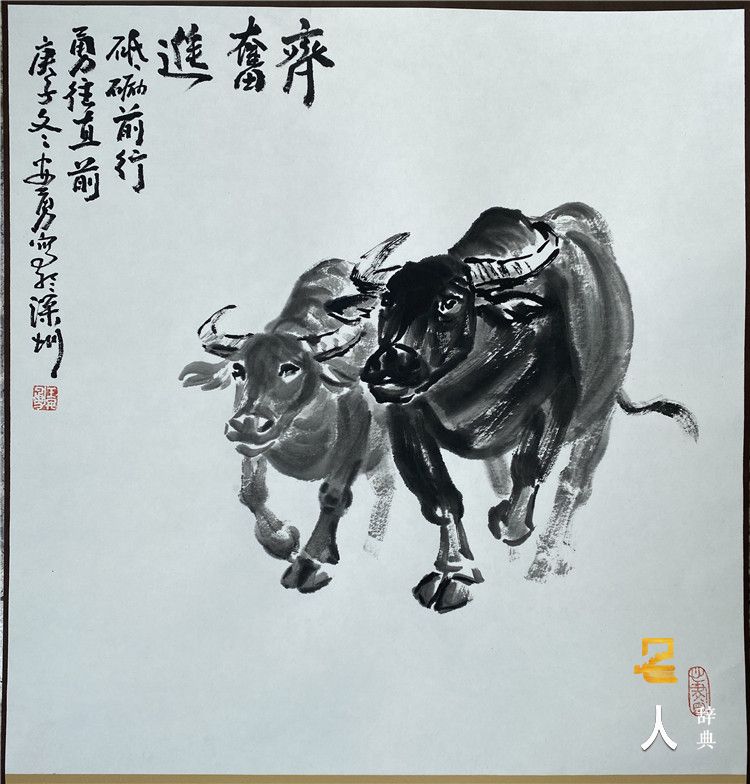 齊奮進
砥砺前行
勇往直前
庚子冬勇写於深圳
名人
辞典